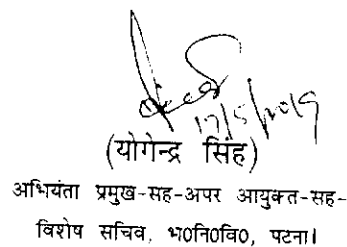 17/5/2019
(योगेन्द्र सिंह)
अभियंता प्रमुख-सह-अपर आयुक्त-सह-
विशेष सचिव, भ0नि0वि0, पटना।